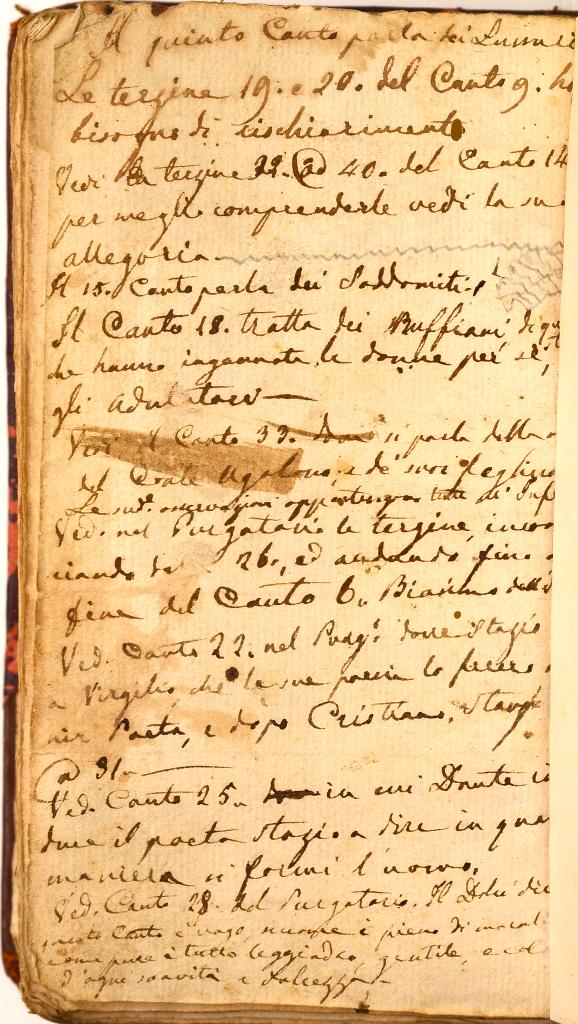 Il quinto Canto parla dei Lussuri
Le terzine 19. e 20. del Canto 9. ha
bisogno di rischiarimento
Vedi la terzina 39. ad 40. del Canto 14
per meglio comprenderle vedi la sua
allegoria
Il 15. Canto parla dei Soddomiti
Il Canto 18. tratta dei Ruffiani, di q
che hanno ingannate le donne per se,
gli adulatori
Vedi il Canto 33. si parla della
del Conte Ugolino, e de' suoi
Le sud.e osservazioni appartengono tutte all' Inf
Ved. nel Purgatorio le terzine, incom
ciando da 26., ed andando fino a
fine del Canto 6. Biasimo dell'
Ved. Canto 22. nel Purg.o dove Stazio
a Virgilio, che le sue poesie lo fecero
nir Poeta, e dopo Cristiano,
ad 31.
Ved. Canto 25. in cui Dante in
duce il poeta Stazio a dire in qua
maniera si formi l'uomo.
Ved. Canto 28. del Purgatorio. Il Dolce dice
questo Canto è vago, è pieno di
come pure è tutto leggiadro, gentile, e
d'ogni soavità e dolcezza